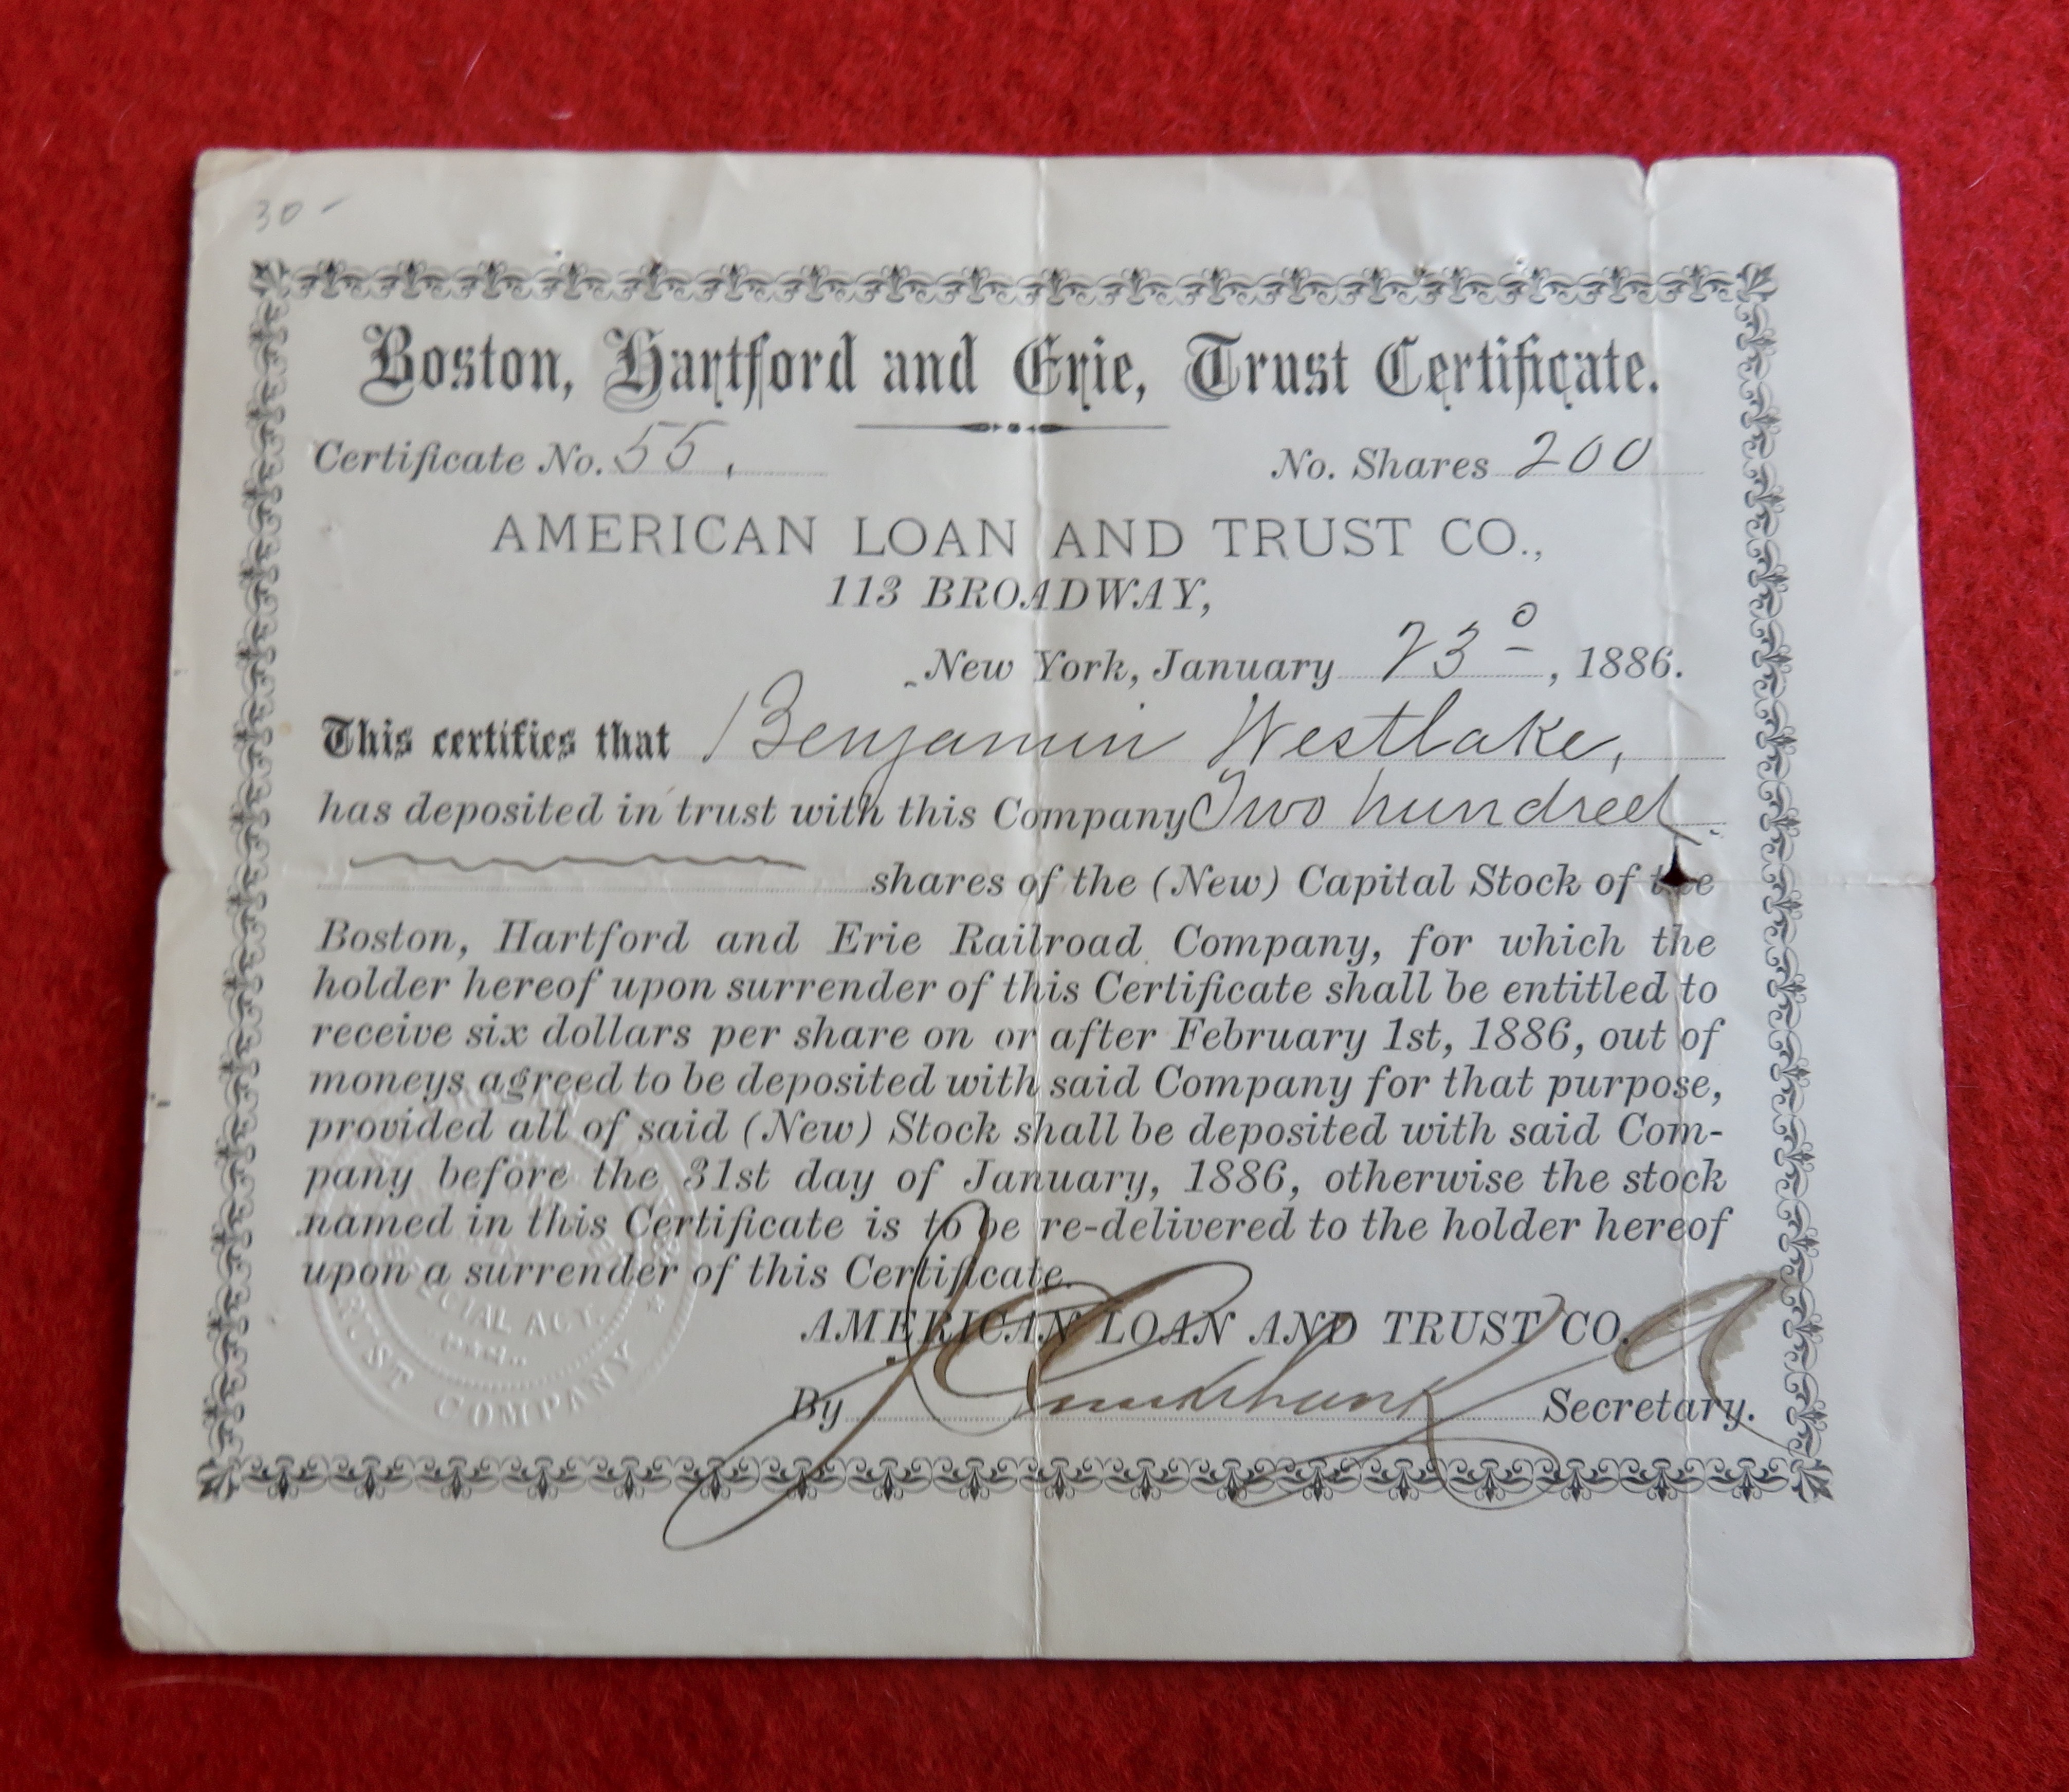 30-
Boston, Hartford and Erie, Trust Certificate.
Certificate No. 55, No. Shares 200
AMERICAN LOAN AND TRUST CO.,
113 BROADWAY,
New York, January 23d, 1886.
This certifies that Benjamin Westlake,
has deposited in trust with this Company Two hundred
shares of the (New) Capital Stock of the
Boston, Hartford and Erie Railroad Company, for which the
holder hereof upon surrender of this Certificate shall be entitled to
receive six dollars per share on or after February 1st, 1886, out of
moneys agreed to be deposited with said Company for that purpose,
provided all of said (New) Stock shall be deposited with said Com-
pany before the 31st day of January, 1886, otherwise the stock
named in this Certificate is to be re-delivered to the holder hereof
upon a surrender of this Certificate.
SPECIAL ACT
TRUST COMPANY
AMERICAN LOAN AND TRUST CO.
By Secretary.